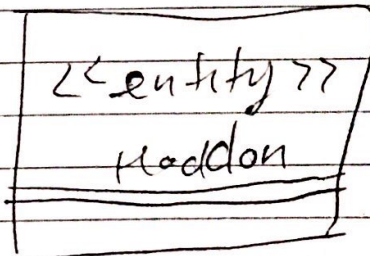 <<entity>>
Haddon